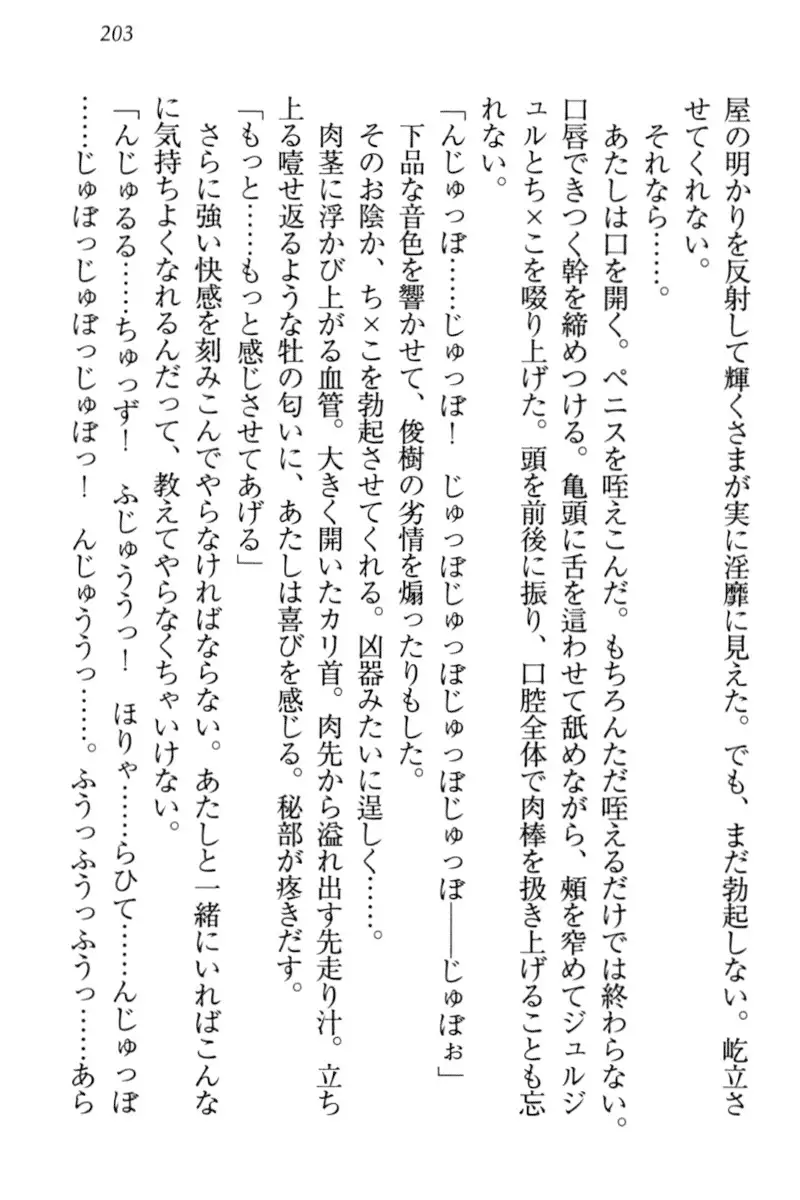 203
屋の明かりを反射して輝くさまが実に淫靡に見えた。でも、まだ勃起しない。屹立さ
せてくれない。
それなら……。
あたしは口を開く。ペニスを咥えこんだ。もちろんただ咥えるだけでは終わらない。
口唇できつく幹を締めつける。亀頭に舌を這わせて舐めながら、頬を窄めてジュルジ
ュルとち×こを啜り上げた。頭を前後に振り、口腔全体で肉棒を扱き上げることも忘
れない。
「んじゅっぽ……じゅっぽ！　じゅっぽじゅっぽじゅっぽじゅっぽ――じゅぽぉ」
下品な音色を響かせて、俊樹の劣情を煽ったりもした。
そのお陰か、ち×こを勃起させてくれる。凶器みたいに逞しく……。
肉茎に浮かび上がる血管。大きく開いたカリ首。肉先から溢れ出す先走り汁。立ち
上る噎せ返るような牡の匂いに、あたしは喜びを感じる。秘部が疼きだす。
「もっと……もっと感じさせてあげる」
さらに強い快感を刻みこんでやらなければならない。あたしと一緒にいればこんな
に気持ちよくなれるんだって、教えてやらなくちゃいけない。
「んじゅるる……ちゅっず！　ふじゅううっ！　ほりゃ……らひて……んじゅっぽ
……じゅぽっじゅぽっじゅぽっ！　んじゅううっ……。ふうっふうっふうっ……あら